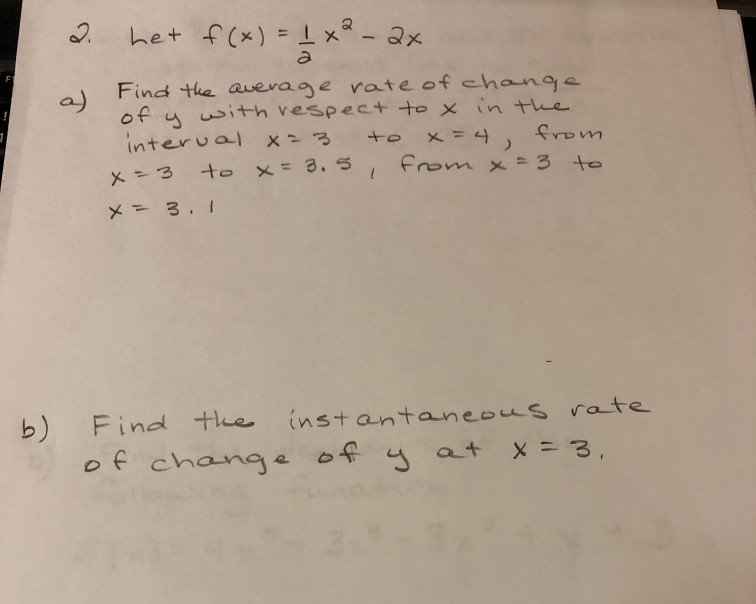 2. Let f(x) = 1/2 x² - 2x
a) Find the average rate of change
of y with respect to x in the
interval x = 3 to x = 4, from
x = 3 to x = 3.5, from x = 3 to
x = 3.1
b) Find the instantaneous rate
of change of y at x = 3.